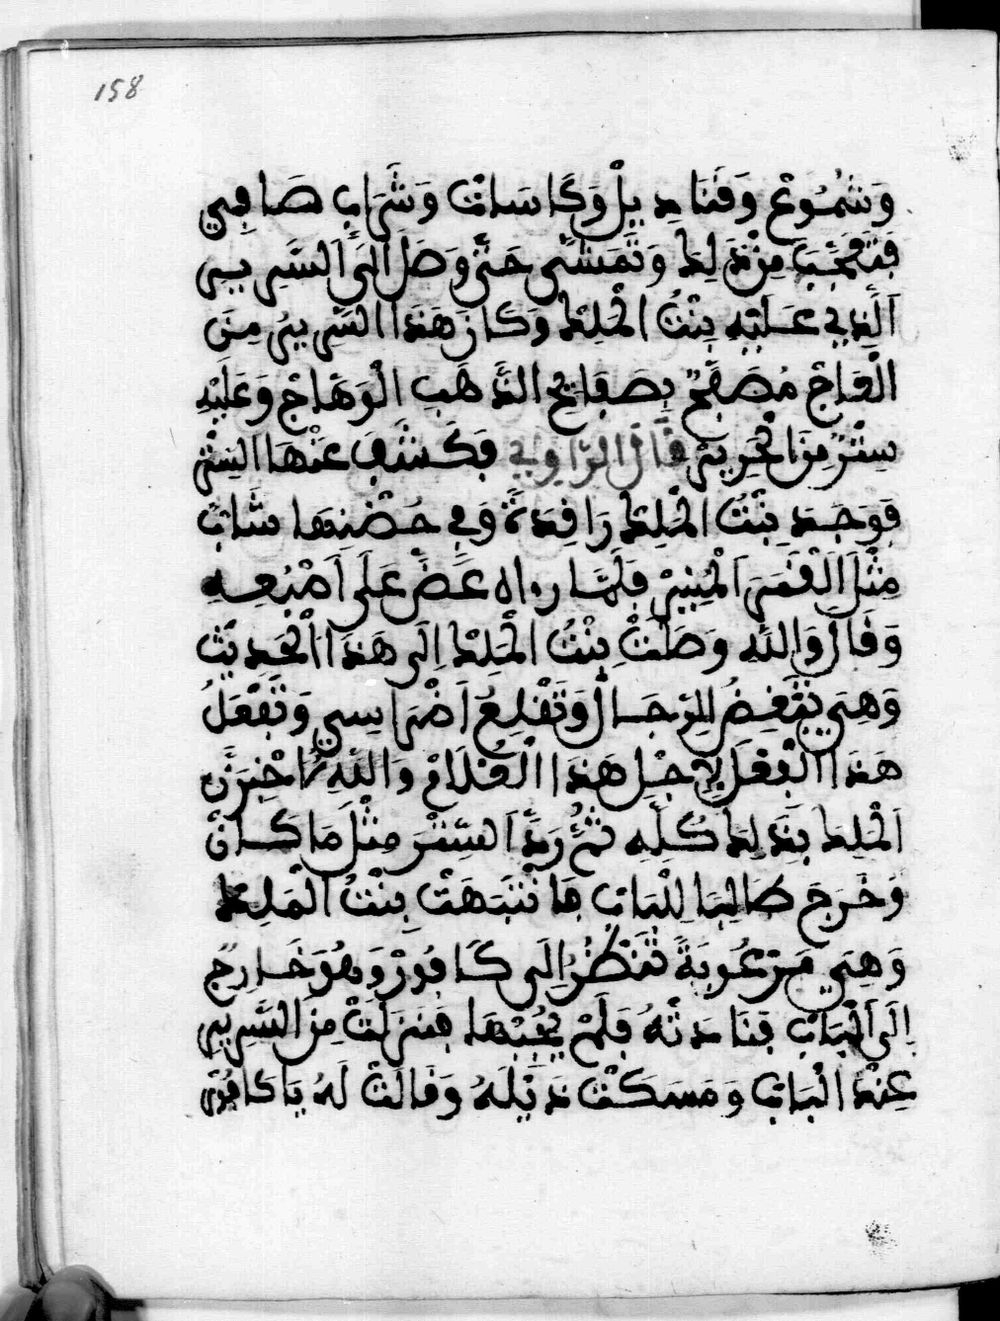 158
وَشُمُوعْ وَقَنَادِيلْ وَكَاسَاتْ وَشَرَابْ صَافِي
فَتَعَجَّبَ مِنْ ذَلِكَ وَتَمَشَّى حَتَّى وَصَلَ اِلَى السَّرِيرِ
اَلَّذِي عَلَيْهِ بِنْتُ الْمَلِكْ وَكَانَ هَذَا السَّرِيرُ مِنَ
الْعَاجْ مُصَفَّحٌ بِصَفَايِحِ الذَّهَبِ الْوَهَّاجْ وَعَلَيْهِ
سِتْرٌ مِنَ الْحَرِيرْ قَالَ الرَّاوِي فَكَشَفَ عَنْهَا السِّتْرْ
فَوَجَدَ بِنْتُ الْمَلِكْ رَاقِدَةٌ وَفِي حُضْنِهَا شَابْ
مِثْلَ الْقَمَرَ الْمُنِيرْ فَلَمَّا رءاه عَضَّ عَلَى اَصْبُعِهِ
وَقَالَ وَاللهِ وَصَلَتْ بِنْتُ الْمَلِكْ اِلَى هَذَا الْحَدِيثْ
وَهِيَ تَبْغِضُ لِلرِّجَالْ وَتَقْلِعُ اَضْرَاسِي وَتَفْعَلُ
هَذَا الْفِعْلَ لِاَجْلِ هَذَا الْغُلَامْ وَاللهِ لَاُخْبِرَنَّ
اَلْمَلِكَ بِذَلِكَ كُلِّهِ ثُمَّ رَدَّ السِّتْرَ مِثْلَ مَا كَانْ
وَخَرَجَ طَالِبًا لِلْبَابْ فَانْتَبَهَتْ بِنْتُ الْمَلِكْ
وَهِيَ مَرْعُوبَةً تَنْظُرُ اِلَى كَافُورْ وَهُوَ خَارِجٌ
اِلَى الْبَابْ فَنَادَتْهُ فَلَمْ يُجِبْهَا فَنَزَلَتْ مِنَ السَّرِيرِ
عِنْدَ الْبَابْ وَمَسَكَتْ ذَيْلَهُ وَقَالَتْ لَهُ يَا كَافُورْ